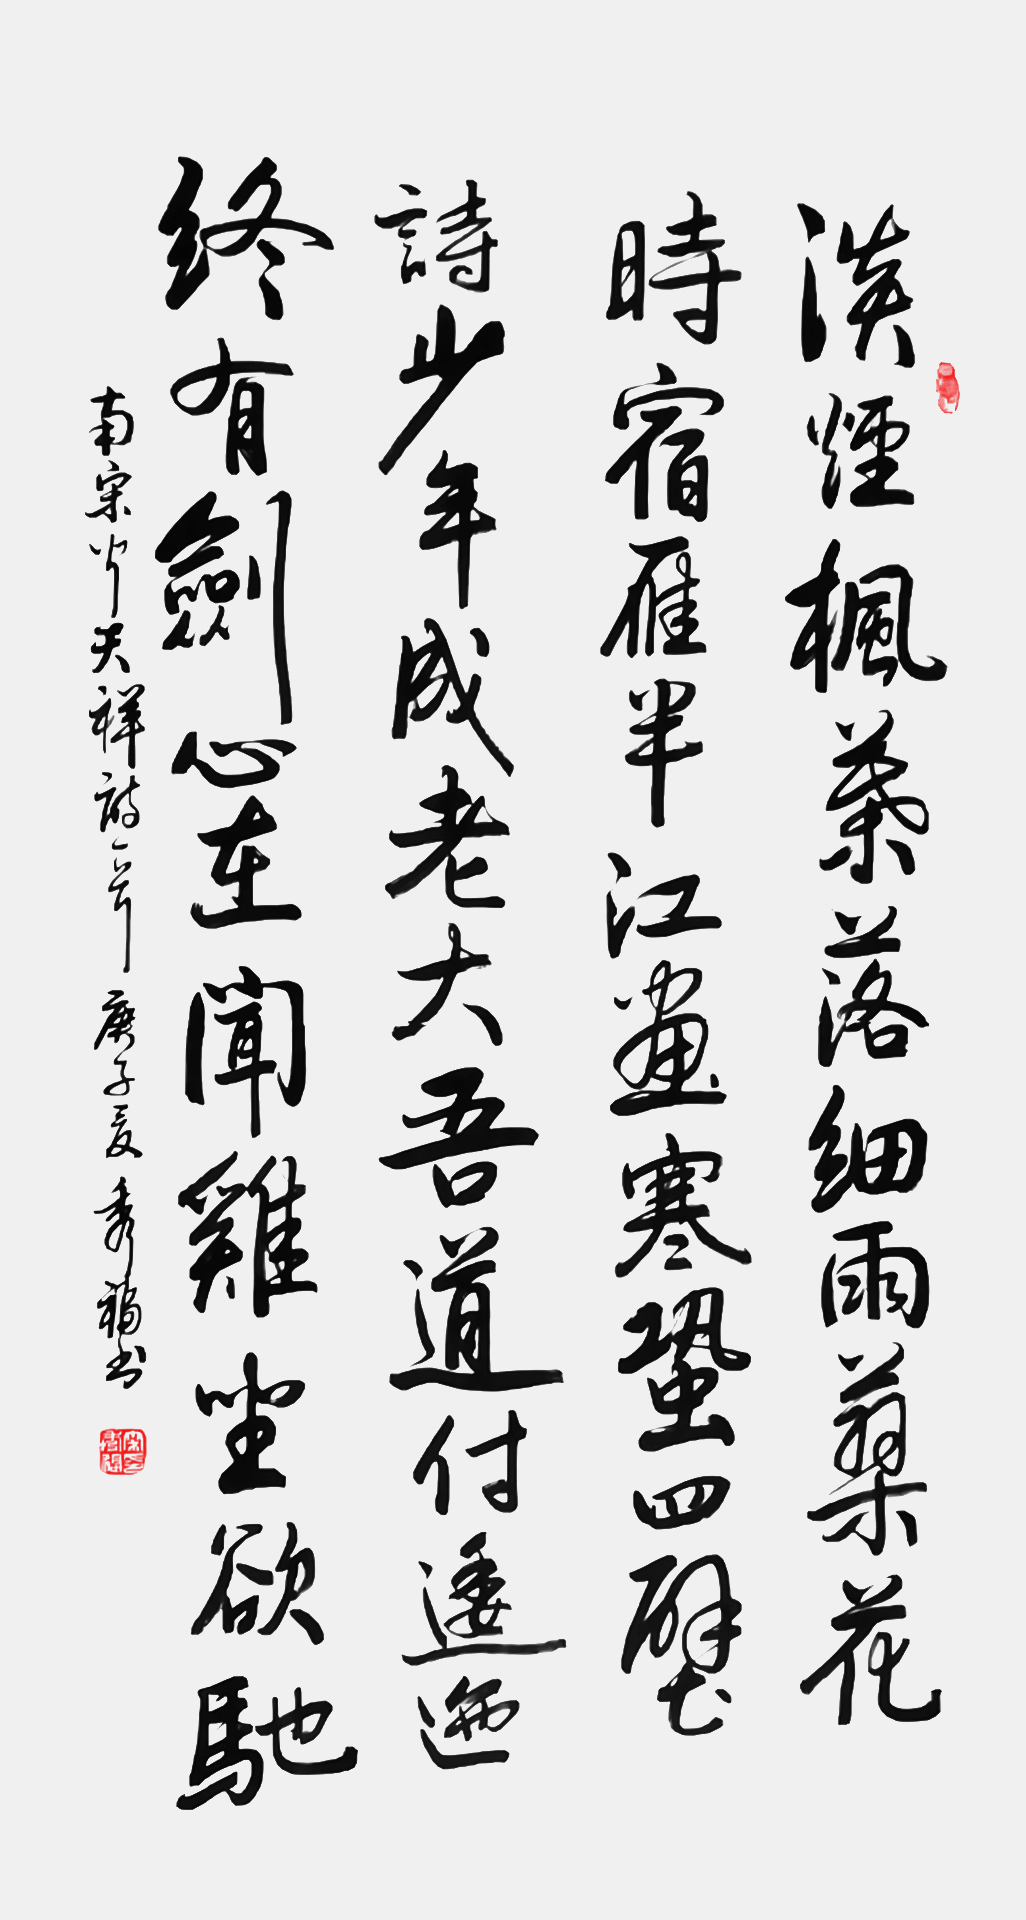 淡煙楓葉落細雨蓼花
時宿雁半江畫寒蛩四壁
詩少年成老大吾道付逶迤
終有劍心在聞雞坐欲馳
南宋文天祥詩一首庚子夏秀福书